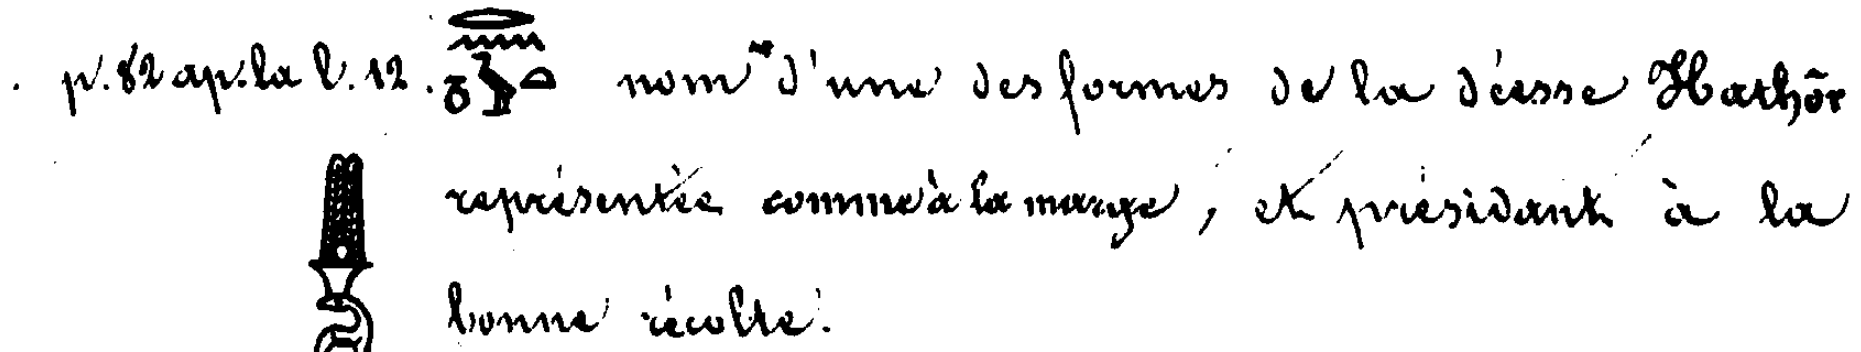 p. 82 ap. la l. 12. 𓂋𓈖 𓏏 nom d'une des formes de la déesse Hathōr
représentée comme à la marge, et présidant à la
bonne récolte.